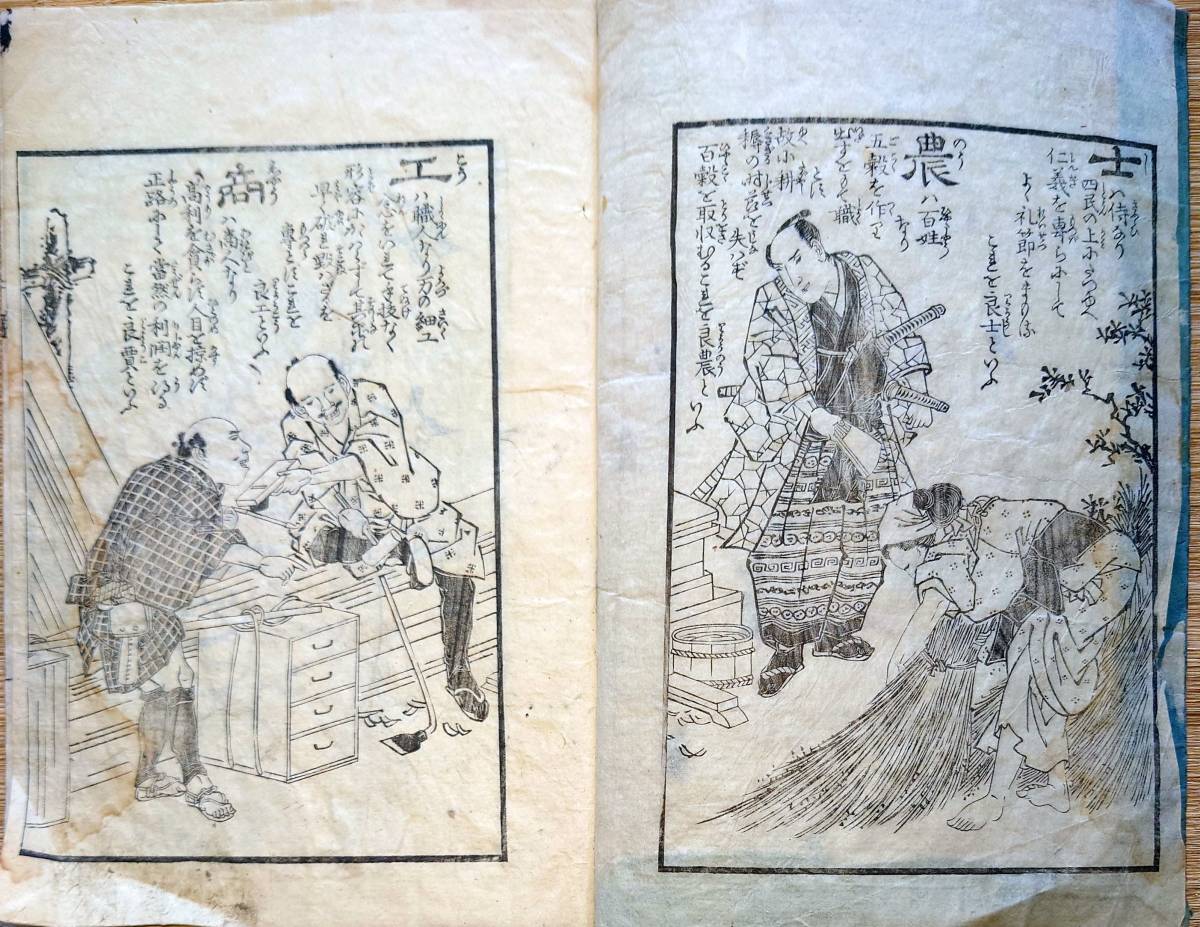 士ハ侍なり
四民の上に立ゆへ
仁義を専らにして
よく礼節をまもりぬ
これを良士といふ
農ハ百姓
なり
五穀を作り
職
とす
故に耕
耨の時節を
失ハず
百穀を取収むるこれを良農と
いふ
工ハ職人なり万の細工
念をいれて手抜なく
形容にかゝハらずして
早破
専とすこれを
良工といふ
商ハ商人なり
高利を貪らず人目を掠めず
正路にして當然の利潤を得る
これを良賈といふ